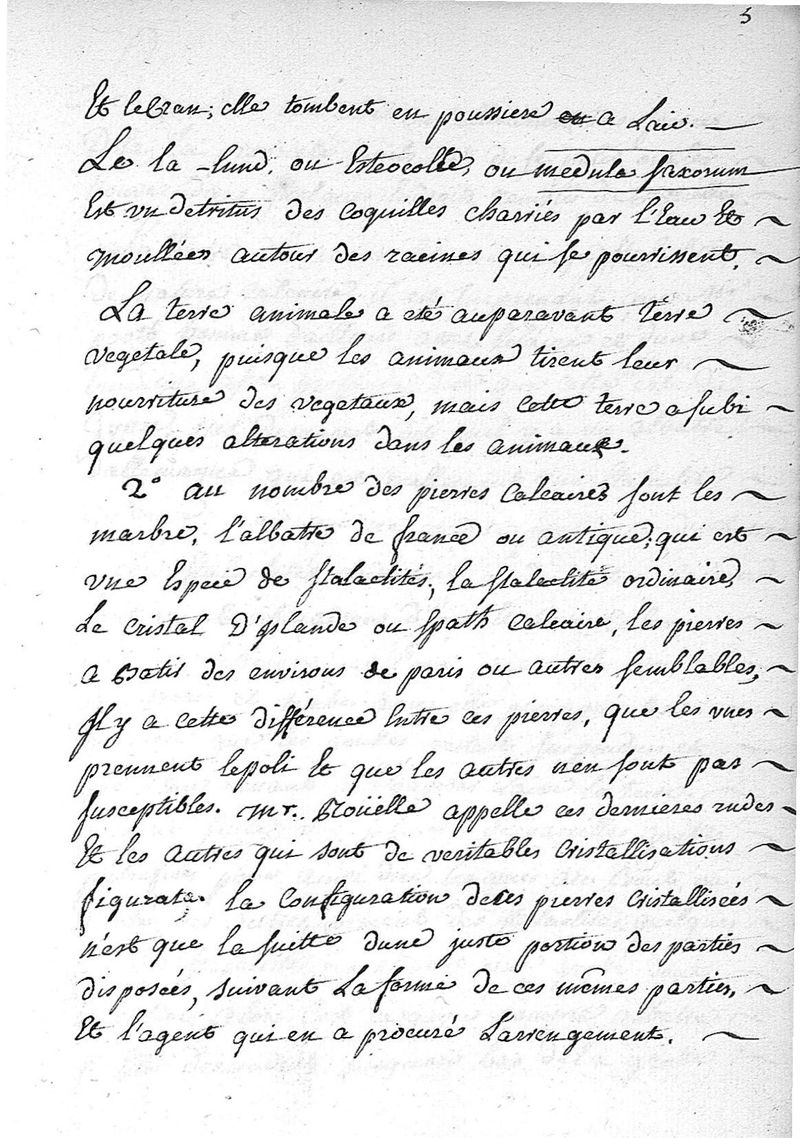 5
Et le Cran; elle tombent en poussiere a Lair.
Le la -lund, ou Esteocolle, ou medula saxorum
Est vn detritus des coquilles charriés par l'Eau Et
moullées autour des racines qui se pourrissent.
La terre animale a eté auparavant terre
vegetale, puisque les animaux tirent leur
nourriture des vegetaux, mais cette terre a subi
quelques alterations dans les animaux.
2° au nombre des pierres Calcaires sont les
marbre, l'albatre de france ou antique; qui est
vne Espece de stalactités, la stalactité ordinaire,
Le cristal D'Islande ou spath Calcaire, les pierres
a Batir des environs de paris ou autres semblables,
Il y a cette différence Entre ces pierres, que les vnes
prennent le poli Et que les autres n'en sont pas
susceptibles. mr. Roüelle appelle ces dernieres rudes
Et les autres qui sont de veritables cristallisations
figurata. la Configuration de ces pierres cristallisées
n'est que la suitte dune juste portion des parties
disposées, suivant La forme de ces mêmes parties,
Et l'agent qui en a procuré Larrengement.